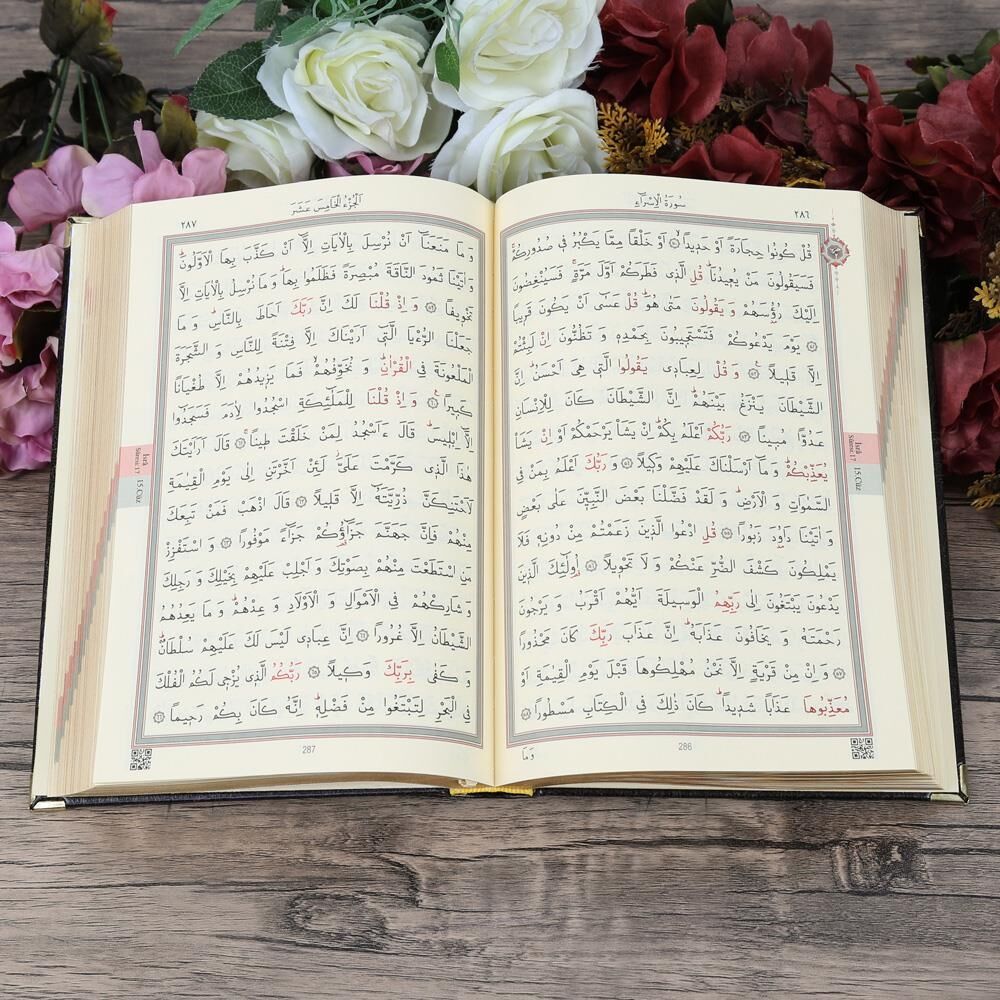 سُورَةُ الْاِسْرَٓاءِ
٢٨٦
قُلْ كُونُوا حِجَارَةً اَوْ حَد۪يدًاۙ ﴿٥٠﴾ اَوْ خَلْقًا مِمَّا يَكْبُرُ ف۪ي صُدُورِكُمْۚ
فَسَيَقُولُونَ مَنْ يُع۪يدُنَاۜ قُلِ الَّذ۪ي فَطَرَكُمْ اَوَّلَ مَرَّةٍۚ فَسَيُنْغِضُونَ
اِلَيْكَ رُؤُ۫سَهُمْ وَ يَقُولُونَ مَتٰى هُوَۜ قُلْ عَسٰٓى اَنْ يَكُونَ قَر۪يبًا
﴿٥١﴾ يَوْمَ يَدْعُوكُمْ فَتَسْتَج۪يبُونَ بِحَمْدِه۪ وَ تَظُنُّونَ اِنْ لَبِثْتُمْ
اِلَّا قَل۪يلًا۟ ﴿٥٢﴾ وَ قُلْ لِعِبَاد۪ي يَقُولُوا الَّت۪ي هِيَ اَحْسَنُۜ اِنَّ
الشَّيْطَانَ يَنْزَغُ بَيْنَهُمْۜ اِنَّ الشَّيْطَانَ كَانَ لِلْاِنْسَانِ
عَدُوًّا مُب۪ينًا ﴿٥٣﴾ رَبُّكُمْ اَعْلَمُ بِكُمْۜ اِنْ يَشَأْ يَرْحَمْكُمْ اَوْ اِنْ يَشَأْ
يُعَذِّبْكُمْۜ وَ مَٓا اَرْسَلْنَاكَ عَلَيْهِمْ وَك۪يلًا ﴿٥٤﴾ وَ رَبُّكَ اَعْلَمُ بِمَنْ فِي
السَّمٰوَاتِ وَ الْاَرْضِۜ وَ لَقَدْ فَضَّلْنَا بَعْضَ النَّبِيّ۪نَ عَلٰى بَعْضٍ
وَ اٰتَيْنَا دَاوُ۫دَ زَبُورًا ﴿٥٥﴾ قُلِ ادْعُوا الَّذ۪ينَ زَعَمْتُمْ مِنْ دُونِه۪ فَلَا
يَمْلِكُونَ كَشْفَ الضُّرِّ عَنْكُمْ وَ لَا تَحْو۪يلًا ﴿٥٦﴾ اُو۬لٰٓئِكَ الَّذ۪ينَ
يَدْعُونَ يَبْتَغُونَ اِلٰى رَبِّهِمُ الْوَس۪يلَةَ اَيُّهُمْ اَقْرَبُ وَ يَرْجُونَ
رَحْمَتَهُ وَ يَخَافُونَ عَذَابَهُۜ اِنَّ عَذَابَ رَبِّكَ كَانَ مَحْذُورًا
﴿٥٧﴾ وَ اِنْ مِنْ قَرْيَةٍ اِلَّا نَحْنُ مُهْلِكُوهَا قَبْلَ يَوْمِ الْقِيٰمَةِ اَوْ
مُعَذِّبُوهَا عَذَابًا شَد۪يدًاۜ كَانَ ذٰلِكَ فِي الْكِتَابِ مَسْطُورًا ﴿٥٨﴾
وَمَا
286
İsrâ
Sûresi:17
15.Cüz
اَلْجُزْءُ الْخَامِسَ عَشَرَ
٢٨٧
وَ مَا مَنَعَنَٓا اَنْ نُرْسِلَ بِالْاٰيَاتِ اِلَّٓا اَنْ كَذَّبَ بِهَا الْاَوَّلُونَۜ
وَ اٰتَيْنَا ثَمُودَ النَّاقَةَ مُبْصِرَةً فَظَلَمُوا بِهَاۜ وَ مَا نُرْسِلُ بِالْاٰيَاتِ اِلَّا
تَخْو۪يفًا ﴿٥٩﴾ وَ اِذْ قُلْنَا لَكَ اِنَّ رَبَّكَ اَحَاطَ بِالنَّاسِۜ وَ مَا
جَعَلْنَا الرُّءْيَا الَّت۪ٓي اَرَيْنَاكَ اِلَّا فِتْنَةً لِلنَّاسِ وَ الشَّجَرَةَ
الْمَلْعُونَةَ فِي الْقُرْاٰنِۜ وَ نُخَوِّفُهُمْۙ فَمَا يَز۪يدُهُمْ اِلَّا طُغْيَانًا
كَب۪يرًا۟ ﴿٦٠﴾ وَ اِذْ قُلْنَا لِلْمَلٰٓئِكَةِ اسْجُدُوا لِاٰدَمَ فَسَجَدُٓوا
اِلَّٓا اِبْل۪يسَۜ قَالَ ءَاَسْجُدُ لِمَنْ خَلَقْتَ ط۪ينًاۚ ﴿٦١﴾ قَالَ اَرَاَيْتَكَ
هٰذَا الَّذ۪ي كَرَّمْتَ عَلَيَّۘ لَئِنْ اَخَّرْتَنِ اِلٰى يَوْمِ الْقِيٰمَةِ
لَاَحْتَنِكَنَّ ذُرِّيَّتَهُٓ اِلَّا قَل۪يلًا ﴿٦٢﴾ قَالَ اذْهَبْ فَمَنْ تَبِعَكَ
مِنْهُمْ فَاِنَّ جَهَنَّمَ جَزَٓاؤُ۬كُمْ جَزَٓاءً مَوْفُورًا ﴿٦٣﴾ وَ اسْتَفْزِزْ
مَنِ اسْتَطَعْتَ مِنْهُمْ بِصَوْتِكَ وَ اَجْلِبْ عَلَيْهِمْ بِخَيْلِكَ وَ رَجِلِكَ
وَ شَارِكْهُمْ فِي الْاَمْوَالِ وَ الْاَوْلَادِ وَ عِدْهُمْۜ وَ مَا يَعِدُهُمُ
الشَّيْطَانُ اِلَّا غُرُورًا ﴿٦٤﴾ اِنَّ عِبَاد۪ي لَيْسَ لَكَ عَلَيْهِمْ سُلْطَانٌۜ
وَ كَفٰى بِرَبِّكَ وَك۪يلًا ﴿٦٥﴾ رَبُّكُمُ الَّذ۪ي يُزْج۪ي لَكُمُ الْفُلْكَ
فِي الْبَحْرِ لِتَبْتَغُوا مِنْ فَضْلِه۪ۜ اِنَّهُ كَانَ بِكُمْ رَح۪يمًا ﴿٦٦﴾
287
İsrâ
Sûresi:17
15.Cüz